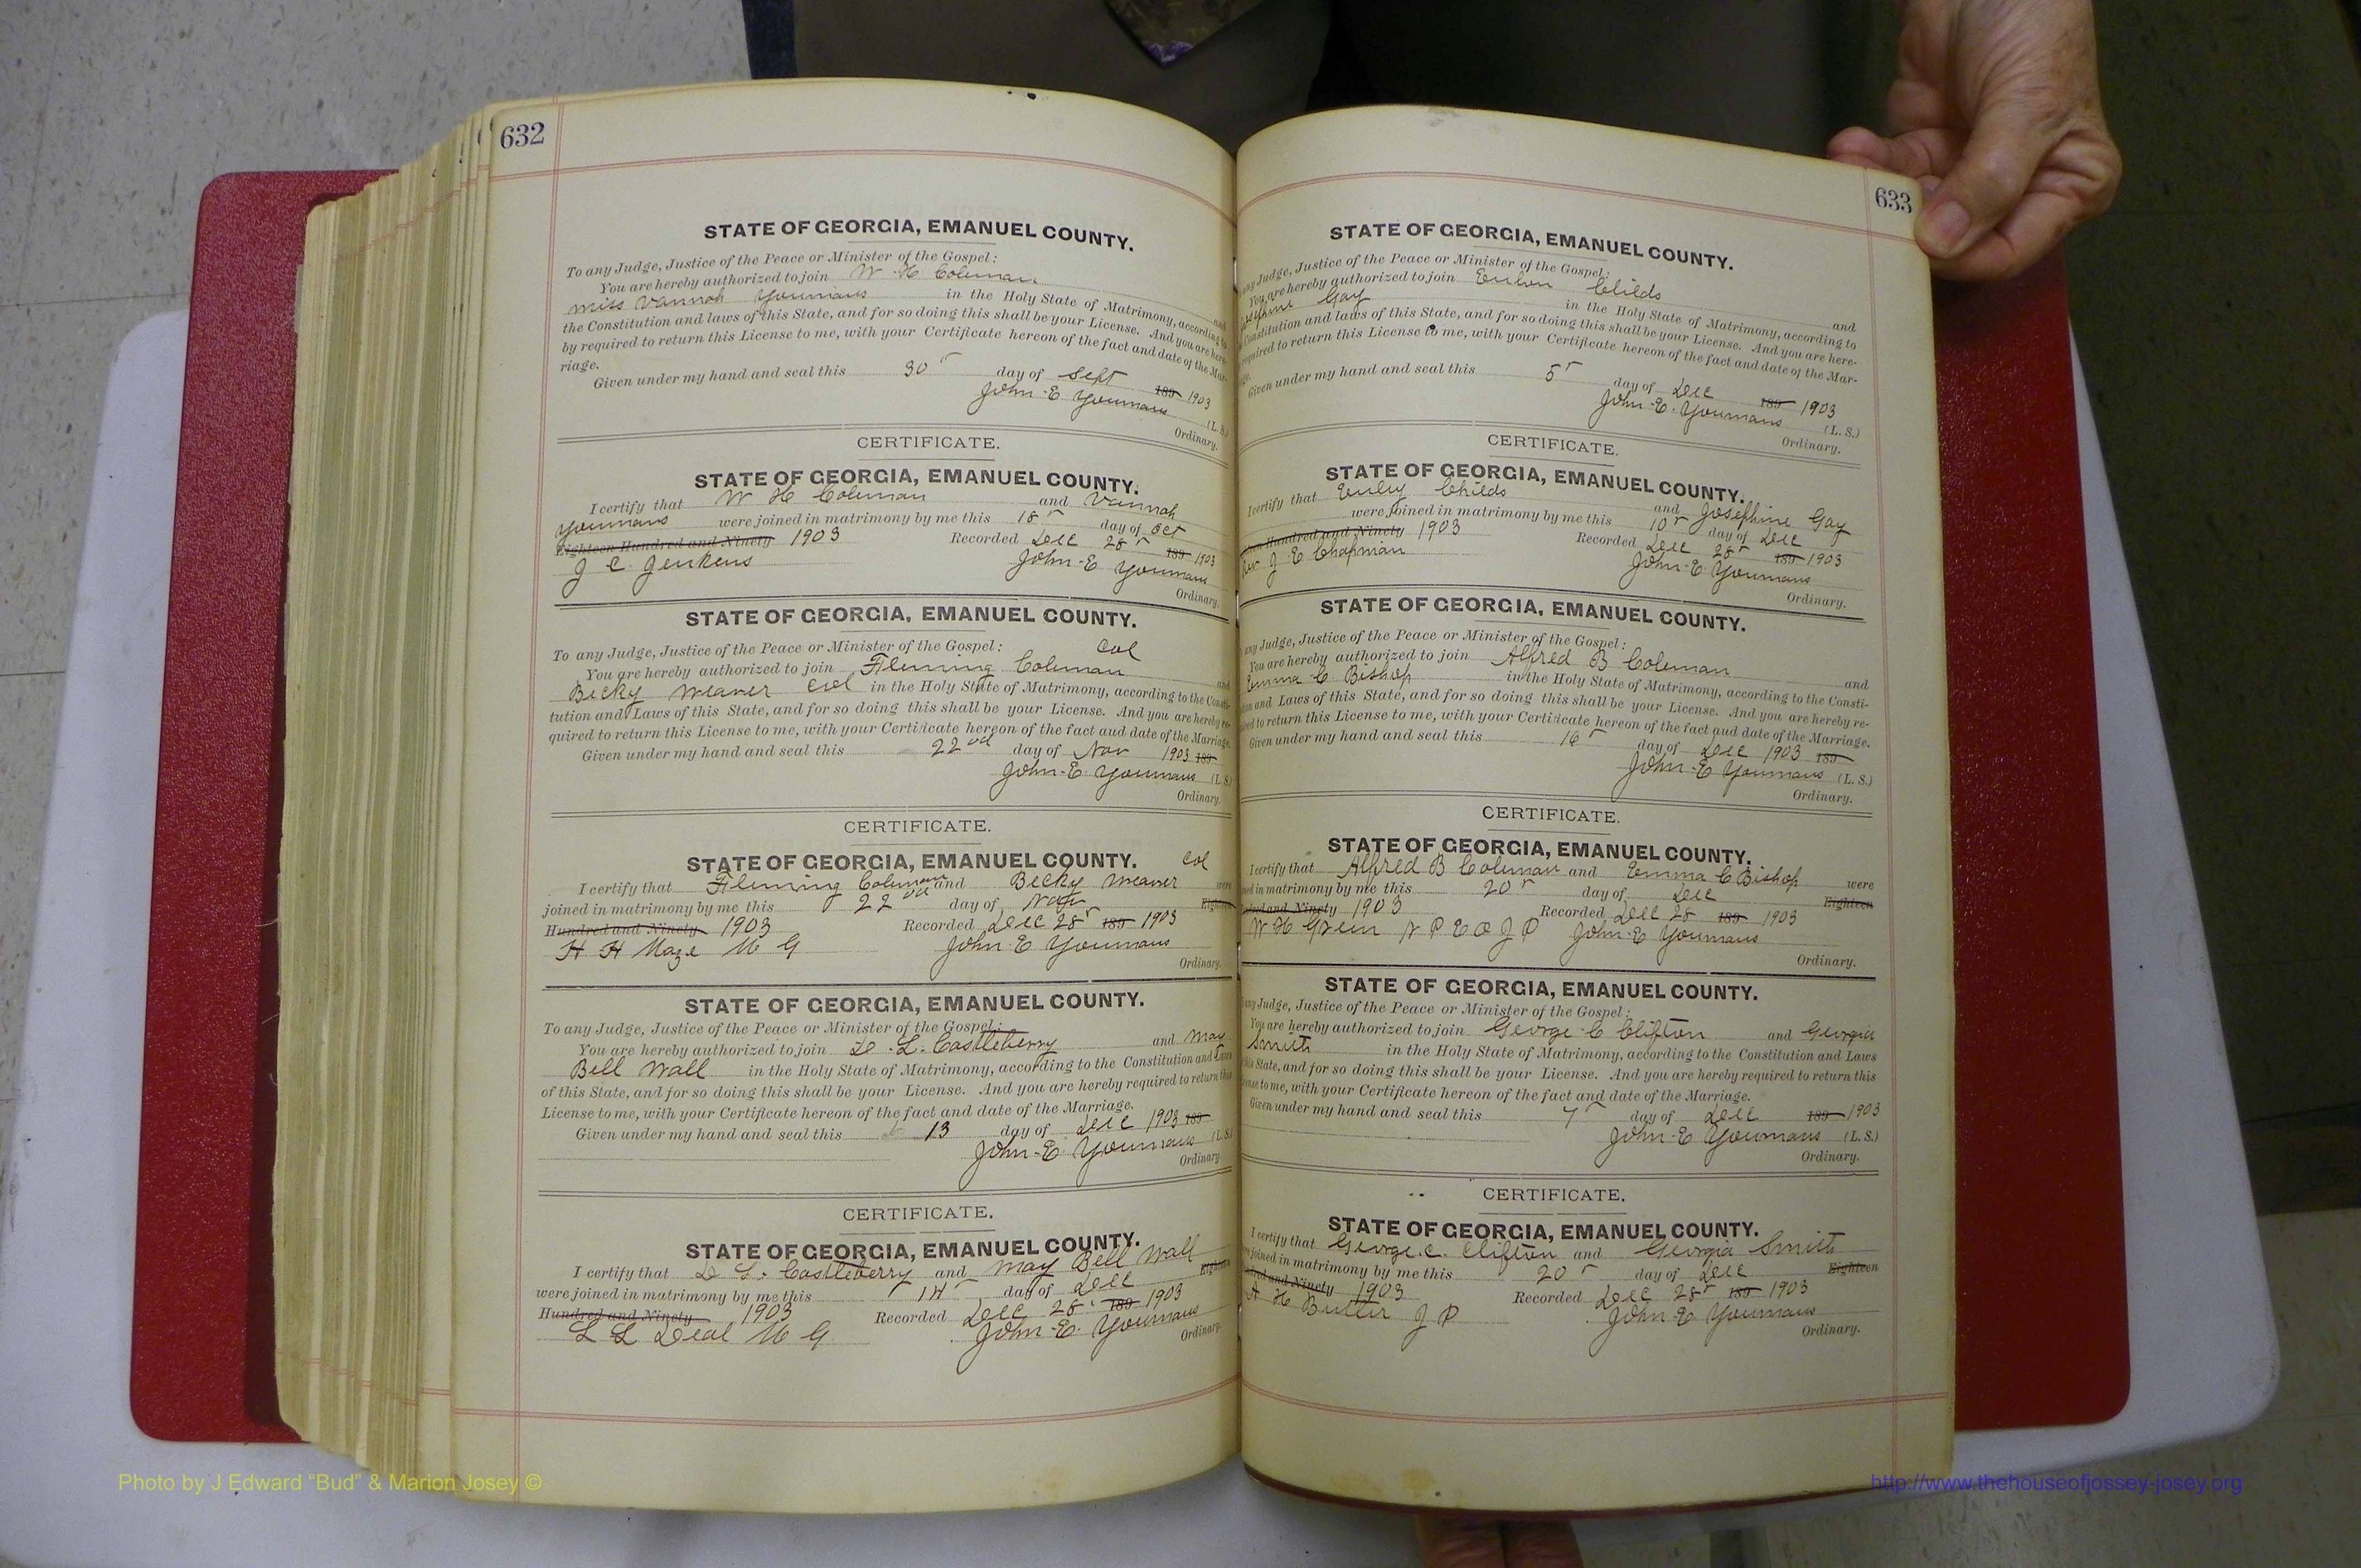 632
STATE OF GEORGIA, EMANUEL COUNTY.
To any Judge, Justice of the Peace or Minister of the Gospel:
You are hereby authorized to join W H Coleman and
miss Vannah Youmans in the Holy State of Matrimony, according to
the Constitution and laws of this State, and for so doing this shall be your License. And you are here-
by required to return this License to me, with your Certificate hereon of the fact and date of the Mar-
riage.
Given under my hand and seal this 30 day of Sept 189 1903
John E Youmans (L. S.)
Ordinary.
CERTIFICATE.
STATE OF GEORGIA, EMANUEL COUNTY.
I certify that W H Coleman and Vannah
Youmans were joined in matrimony by me this 18 day of Oct
Eighteen Hundred and Ninety 1903 Recorded Dec 28 189 1903
J C Jenkens John E Youmans
Ordinary.
STATE OF GEORGIA, EMANUEL COUNTY.
To any Judge, Justice of the Peace or Minister of the Gospel: Col
You are hereby authorized to join Fleming Coleman and
Becky Weaver Col in the Holy State of Matrimony, according to the Consti-
tution and Laws of this State, and for so doing this shall be your License. And you are hereby re-
quired to return this License to me, with your Certificate hereon of the fact and date of the Marriage.
Given under my hand and seal this 22nd day of Nov 1903 189
John E Youmans (L. S.)
Ordinary.
CERTIFICATE.
STATE OF GEORGIA, EMANUEL COUNTY. Col
I certify that Fleming Coleman and Becky Weaver were
joined in matrimony by me this 22nd day of Nov Eighteen
Hundred and Ninety 1903 Recorded Dec 28 189 1903
H H Maze M G John E Youmans
Ordinary.
STATE OF GEORGIA, EMANUEL COUNTY.
To any Judge, Justice of the Peace or Minister of the Gospel:
You are hereby authorized to join D. L. Castleberry and May
Bell Wall in the Holy State of Matrimony, according to the Constitution and Laws
of this State, and for so doing this shall be your License. And you are hereby required to return this
License to me, with your Certificate hereon of the fact and date of the Marriage.
Given under my hand and seal this 13 day of Dec 1903 189
John E. Youmans (L. S.)
Ordinary.
CERTIFICATE.
STATE OF GEORGIA, EMANUEL COUNTY.
I certify that D L. Castleberry and May Bell Wall
were joined in matrimony by me this 14 day of Dec Eighteen
Hundred and Ninety 1903 Recorded Dec 28 189 1903
L L Deal M G John E. Youmans
Ordinary.
633
STATE OF GEORGIA, EMANUEL COUNTY.
any Judge, Justice of the Peace or Minister of the Gospel:
You are hereby authorized to join Eulon Childs and
Josephine Gay in the Holy State of Matrimony, according to
Constitution and laws of this State, and for so doing this shall be your License. And you are here-
required to return this License to me, with your Certificate hereon of the fact and date of the Mar-
Given under my hand and seal this 5 day of Dec 189 1903
John E. Youmans (L. S.)
Ordinary.
CERTIFICATE.
STATE OF GEORGIA, EMANUEL COUNTY.
I certify that Childs and Josephine Gay
were joined in matrimony by me this 10 day of Dec
Hundred and Ninety 1903 Recorded Dec 28 189 1903
Rev J E Chapman John E Youmans
Ordinary.
STATE OF GEORGIA, EMANUEL COUNTY.
any Judge, Justice of the Peace or Minister of the Gospel:
You are hereby authorized to join Alfred B Coleman and
Emma C Bishop in the Holy State of Matrimony, according to the Consti-
and Laws of this State, and for so doing this shall be your License. And you are hereby re-
to return this License to me, with your Certificate hereon of the fact and date of the Marriage.
Given under my hand and seal this 16 day of Dec 1903 189
John E Youmans (L. S.)
Ordinary.
CERTIFICATE.
STATE OF GEORGIA, EMANUEL COUNTY.
I certify that Alfred B Coleman and Emma C Bishop were
in matrimony by me this 20 day of Dec Eighteen
and Ninety 1903 Recorded Dec 28 189 1903
W H Green N P E O J P John E Youmans
Ordinary.
STATE OF GEORGIA, EMANUEL COUNTY.
any Judge, Justice of the Peace or Minister of the Gospel:
You are hereby authorized to join George C Clifton and Georgia
Smith in the Holy State of Matrimony, according to the Constitution and Laws
this State, and for so doing this shall be your License. And you are hereby required to return this
to me, with your Certificate hereon of the fact and date of the Marriage.
Given under my hand and seal this 7 day of Dec 189 1903
John E Youmans (L. S.)
Ordinary.
CERTIFICATE.
STATE OF GEORGIA, EMANUEL COUNTY.
I certify that George. C. Clifton and Georgia Smith
joined in matrimony by me this 20 day of Dec Eighteen
and Ninety 1903 Recorded Dec 28 189 1903
A H Butler J P John E Youmans
Ordinary.
Photo by J Edward “Bud” & Marion Josey ©
http://www.thehouseofjossey-josey.org